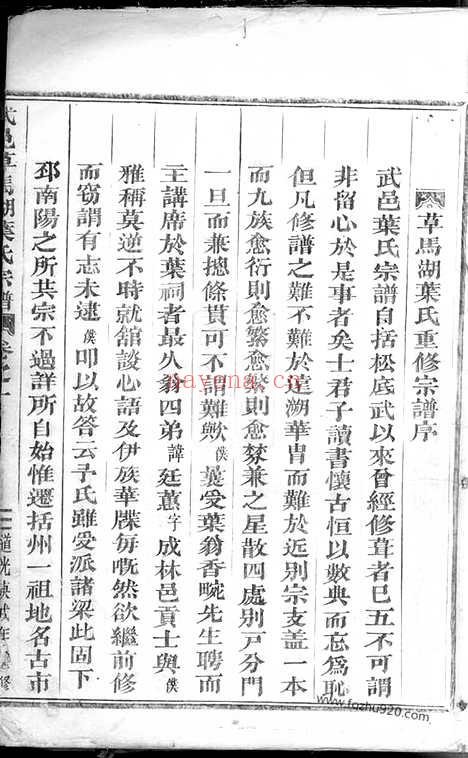 草馬湖葉氏重修宗譜序
武邑葉氏宗譜自括松底武以來曾經修葺者已五不可謂
非留心於是事者矣士君子讀書懷古恒以數典而忘爲恥
但凡修譜之難不難於遠溯華胄而難於近別宗支蓋一本
而九族愈衍則愈繁愈繁則愈棼兼之星散四處別戸分門
一旦而兼摠條貫可不謂難歟僕曩受葉翁香畹先生聘而
主講席於葉祠者最久翁四弟諱廷蕙字成林邑貢士與僕
雅稱莫逆不時就舘談心語及伊族華牒每慨然欲繼前修
而窃謂有志未逮僕叩以故答云予氏雖受派諸梁此固下
邳南陽之所共宗不過詳所自始惟遷括州一祖地名古市
武邑草馬湖葉氏宗譜 卷之一
道光 戌年 修
nayona.cn
www.fgzhu920.com